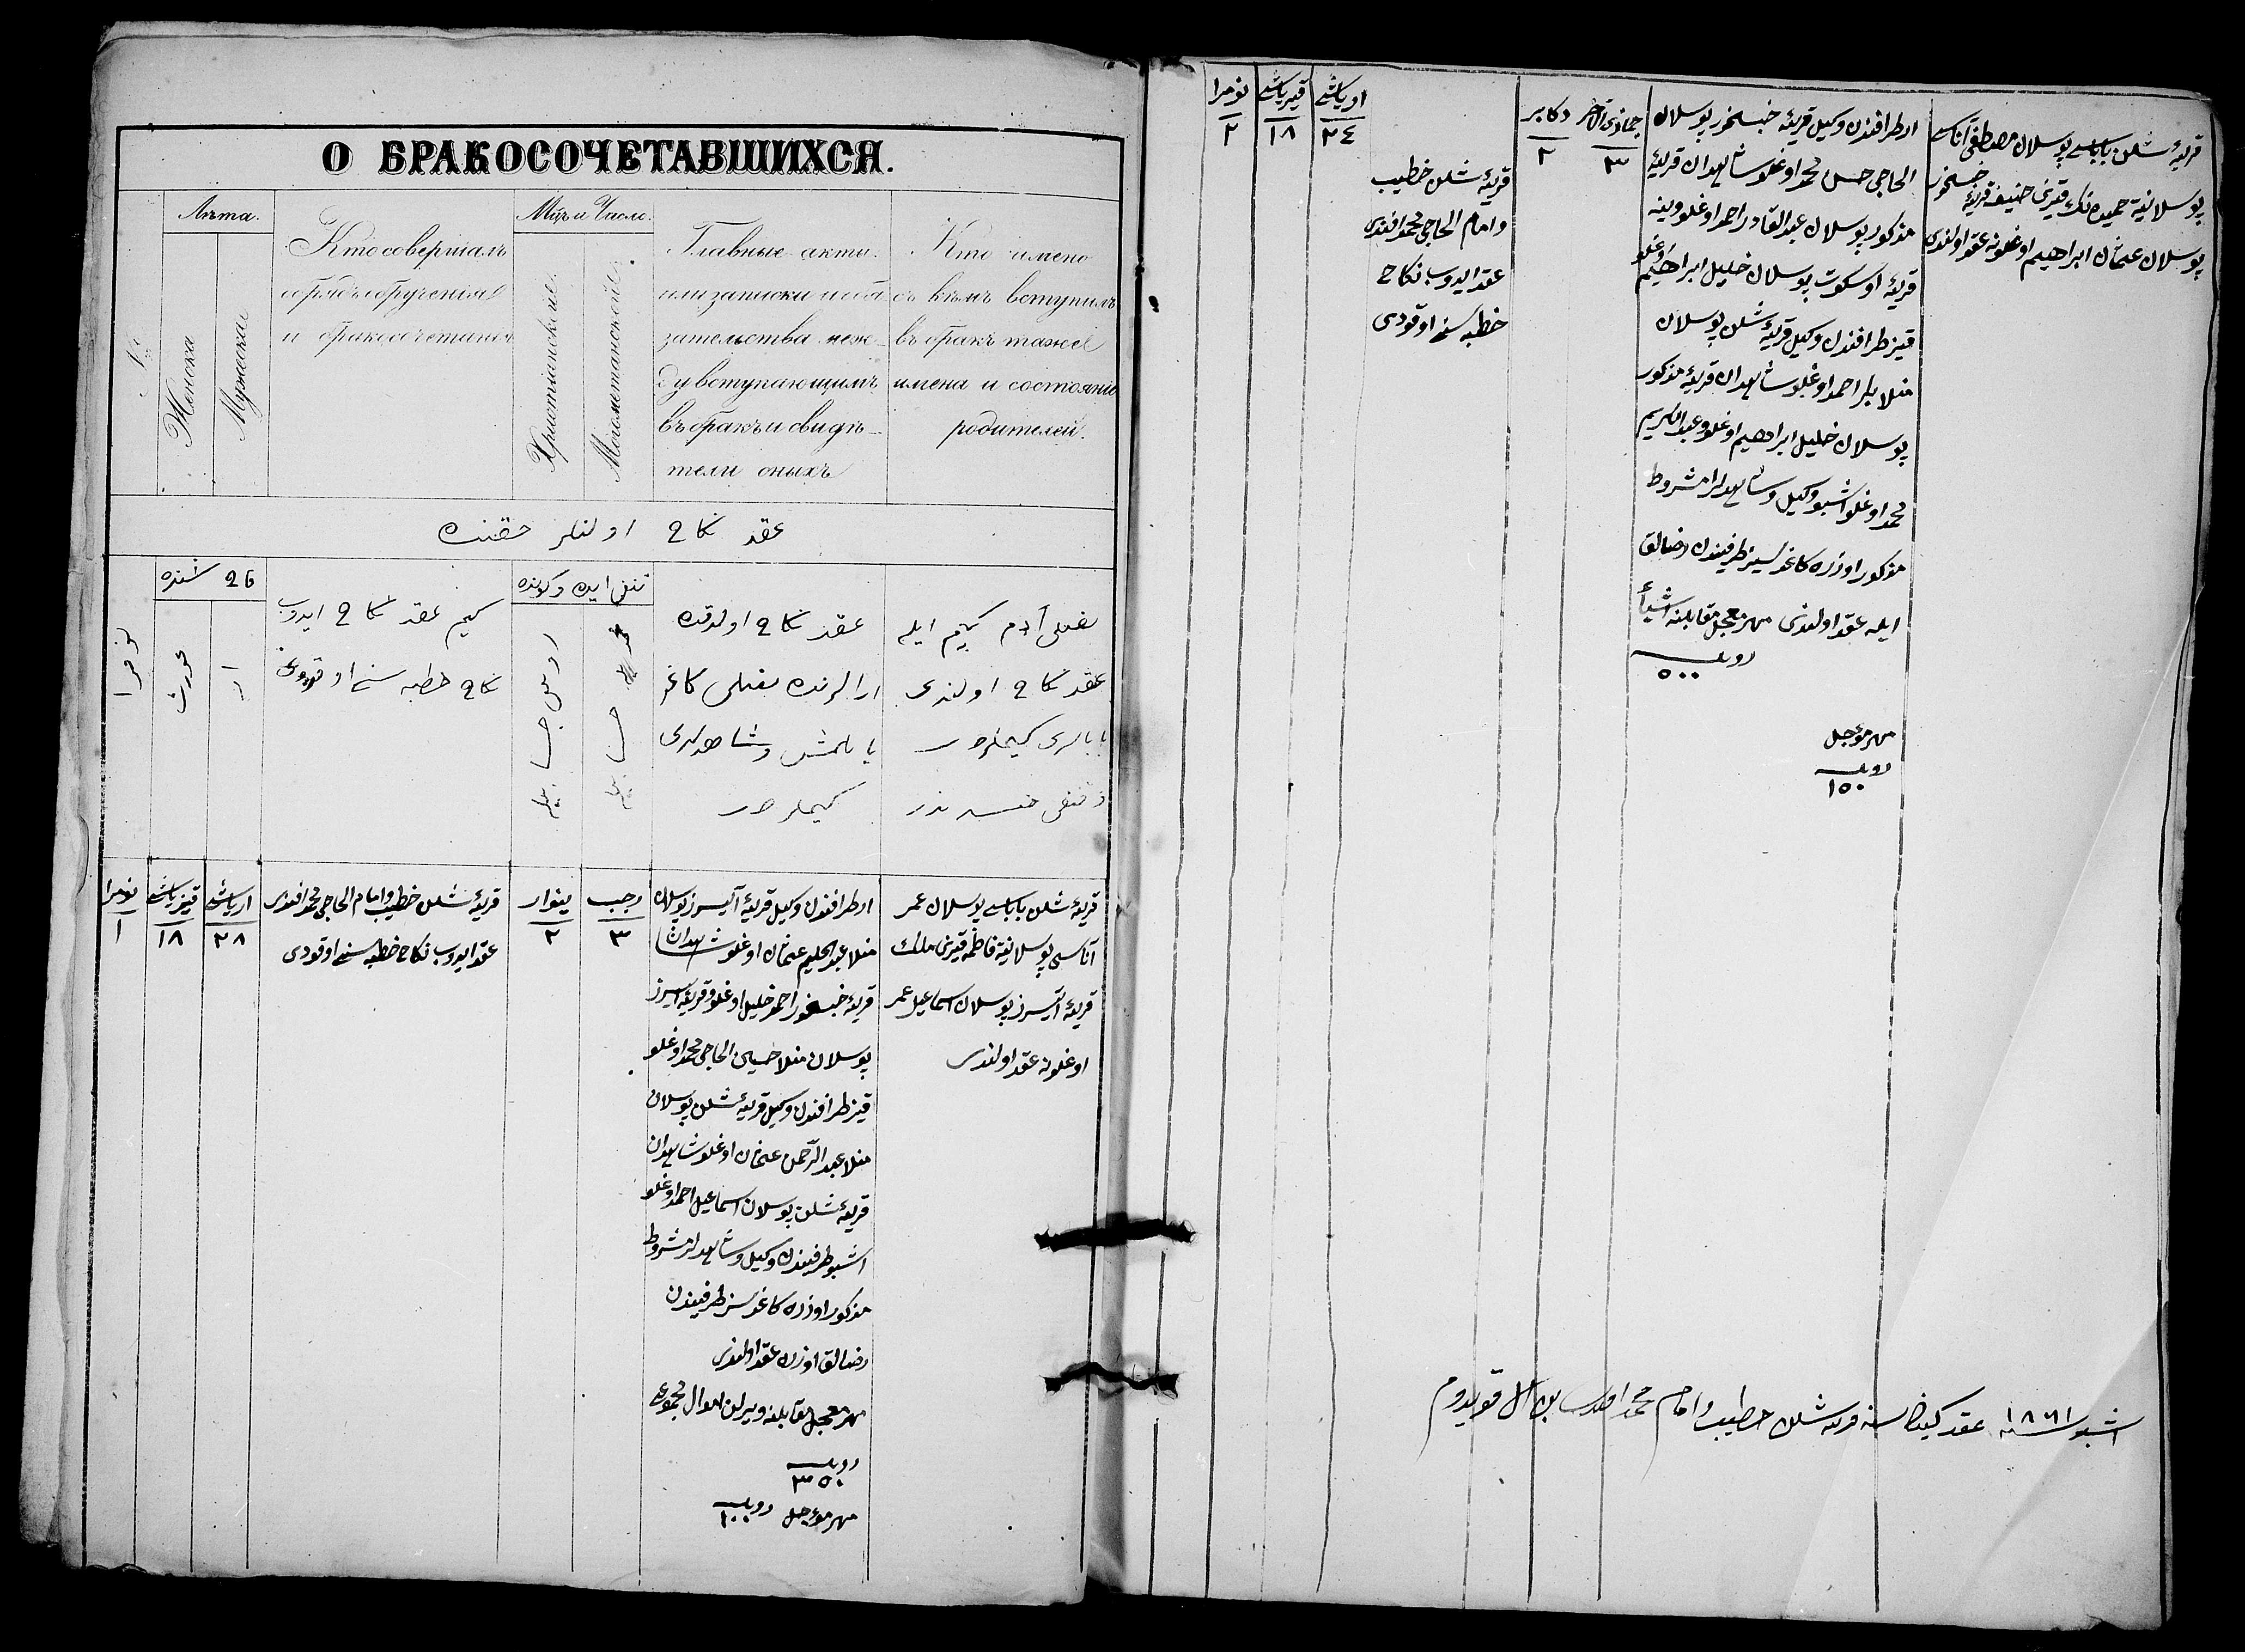 О БРАКОСОЧЕТАВШИХСЯ.
№
Лѣта.
Женска
Мужеска
Кто совершалъ
обрядъ обрученія
и бракосочетанія
Мѣс. и Число.
Христіанской.
Магометанской.
Главные акты
или записки и обя
зательства меж-
ду вступающимъ
въ бракъ и свидѣ-
тели оныхъ
Кто имено
съ кѣмъ вступилъ
въ бракъ также
имена и состояніе
родителей.
عقد نكاح اولنلر حقنده
نومرا
عورت
ار
كيم عقد نكاح ايدوب
نكاح خطبه سنى اوقودى
عقد نكاح اولدقده
ارالرنده
كيملردر
كيم ايله
عقد نكاح اولندى
بابالرى كيملردر
نومرا
١
قيز ياشى
١٨
ار ياشى
٢٨
قريۀ شلن خطيب و امام الحاجى محمد افندى
عقد ايدوب نكاح خطبه سنى اوقودى
ينوار
٢
رجب
٣
ار طرافندن وكيل قريۀ پوسلان
منلا عبدالحليم عثمان اوغلو شاهدان
قريۀ احمد خليل اوغلو و قريۀ
پوسلان منلا حسين الحاجى محمد اوغلو
قيز طرافندن وكيل قريۀ شلن پوسلان
منلا عبدالرحمن عثمان اوغلو شاهدان
قريۀ شلن پوسلان اسماعيل احمد اوغلو
اشبو طرفيندن وكيل و شاهدلر مشروط
مذكور اوزره كاغدسز طرفيندن
رضالق اوزره عقد اولندى
مهر معجل مقابلنه ويرلن اموال مجموعى
روبله
٣٥٠
مهر مؤجل روبله ١٠٠
قريۀ شلن باباسى پوسلان عمر
آناسى پوسلانيۀ فاطمه قيزى
قريۀ پوسلان اسماعيل عمر
اوغلونه عقد اولندى
نومرا
٢
قيز ياشى
١٨
ار ياشى
٢٤
قريۀ شلن خطيب
و امام الحاجى محمد افندى
عقد ايدوب نكاح
خطبه سنى اوقودى
دكابر
٢
جماذى الآخر
٣
ار طرافندن وكيل قريۀ پوسلان
الحاجى حسن محمد اوغلو شاهدان قريۀ
مذكور پوسلان عبدالقادر احمد اوغلو وينه
قريۀ اوسكوت پوسلان خليل ابراهيم اوغلو
قيز طرافندن وكيل قريۀ شلن پوسلان
منلا احمد اوغلو شاهدان قريۀ مذكور
پوسلان خليل ابراهيم اوغلو و عبدالكريم
محمد اوغلو اشبو وكيل و شاهدلر مشروط
مذكور اوزره كاغدسز طرفيندن رضالق
ايله عقد اولندى مهر معجل مقابلنه اشيا
روبله
٥٠٠
مهر مؤجل
روبله
١٥٠
قريۀ شلن باباسى پوسلان مصطفى آناسى
پوسلانيۀ حميده نك قيزى حنيفه قريۀ
پوسلان عثمان ابراهيم اوغلونه عقد اولندى
اشبو ١٨٦١ سنه قريۀ شلن خطيب و امام محمد افندى قويدوم